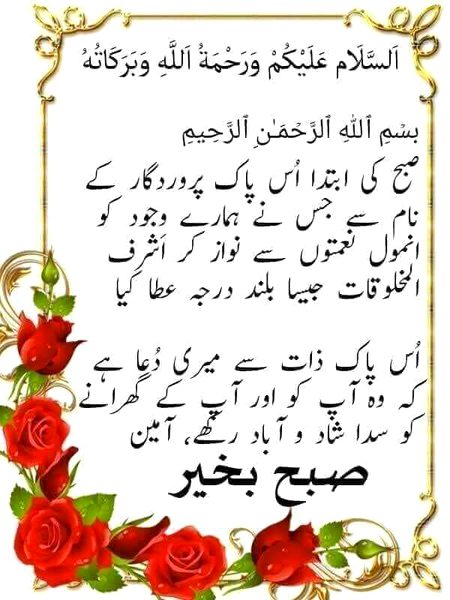 اَلسَّلَام عَلَيْكُمْ وَرَحْمَةُ اَللَّهِ وَبَرَكَاتُهُ
بِسْمِ ٱللَّهِ ٱلرَّحْمَـٰنِ ٱلرَّحِيمِ
صبح کی ابتدا اُس پاک پروردگار کے
نام سے جس نے ہمارے وجود کو
انمول نعمتوں سے نواز کر اَشرف
المخلوقات جیسا بلند درجہ عطا کیا
اُس پاک ذات سے میری دُعا ہے
کہ وہ آپ کو اور آپ کے گھرانے
کو سدا شاد و آباد رکھے، آمین
صبح بخیر